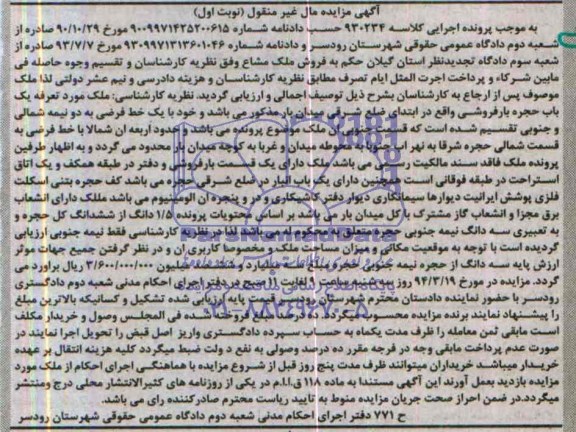 آگهی مزایده مال غیر منقول (نوبت اول)
به موجب پرونده اجرایی کلاسه ۹۳۰۲۳۴ حسب دادنامه شماره ۹۰۰۹۹۷۱۴۲۵۲۰۰۶۱۵ مورخ ۹۰/۱۰/۲۹ صادره از
شعبه دوم دادگاه عمومی حقوقی شهرستان رودسر و دادنامه شماره ۹۳۰۹۹۷۱۳۱۳۶۰۱۰۴۶ مورخ ۹۳/۷/۷ صادره از
شعبه سوم دادگاه تجدیدنظر استان گیلان حکم به فروش ملک مشاع وفق نظریه کارشناسان و تقسیم وجوه حاصله فی
مابین شرکاء و پرداخت اجرت المثل ایام تصرف مطابق نظریه کارشناسان و هزینه دادرسی و نیم عشر دولتی لذا ملک
موصوف پس از ارجاع به کارشناسان بشرح ذیل توصیف اجمالی و ارزیابی گردید. نظریه کارشناسی: ملک مورد تعرفه یک
باب حجره بارفروشی واقع در ابتدای ضلع شرقی میدان بار مذکور می باشد و خود با یک خط فرضی به دو نیمه شمالی
و جنوبی تقسیم شده است که قسمت جنوبی آن ملک موضوع پرونده می باشد و حدود اربعه آن شمالا با خط فرضی به
قسمت شمالی حجره شرقا به نهر آب جنوبا به محوطه میدان و غربا به کوچه میدان بار محدود می گردد و به اظهار طرفین
پرونده ملک فاقد سند مالکیت رسمی می باشد ملک دارای یک قسمت بارفروشی و دفتر در طبقه همکف و یک اتاق
استراحت در طبقه فوقانی است همچنین دارای یک باب انبار در ضلع شرقی حجره می باشد کف حجره بتنی اسکلت
فلزی پوشش ایرانیت دیوارها سیمانکاری دیوار دفتر کاشیکاری و در و پنجره آن آلومینیوم می باشد مللک دارای انشعاب
برق مجزا و انشعاب گاز مشترک با کل میدان بار می باشد بر اساس محتویات پرونده ۱/۵ دانگ از ششدانگ کل حجره و
به تعبیری سه دانگ نیمه جنوبی حجره متعلق به محکوم له می باشد لذا در نظریه کارشناسی فقط نیمه جنوبی ارزیابی
گردیده است با توجه به موقعیت مکانی و میزان مساحت ملک و مخصوصا کاربری آن و در نظر گرفتن جمیع جهات موثر
ارزش پایه سه دانگ از حجره نیمه جنوبی حجره مبلغ سه میلیارد و ششصد میلیون ۳/۶۰۰/۰۰۰/۰۰۰ ریال براورد می
گردد. مزایده در مورخ ۹۴/۳/۱۹ روز سه شنبه ساعت ۱۰ الی ۱۱ صبح در دفتر اجرای احکام مدنی شعبه دوم دادگستری
رودسر با حضور نماینده دادستان محترم شهرستان رودسر قیمت پایه ارزیابی شده تشکیل و کسانیکه بالاترین مبلغ
را پیشنهاد نمایند برنده مزایده محسوب میگردد فروخته شده فی المجلس وصول و خریدار مکلف
است مابقی ثمن معامله را ظرف مدت یکماه به حساب سپرده دادگستری واریز اصل قبض را تحویل اجرا نمایند در
صورت عدم پرداخت مابقی وجه در فرجه مقرر ده درصد وصولی به نفع دولت ضبط میگردد کلیه هزینه انتقال بر عهده
خریدار میباشد خریداران میتوانند ظرف مدت پنج روز قبل از شروع مزایده با هماهنگی اجرای احکام از ملک مورد
مزایده بازدید بعمل آورند این آگهی مستندا به ماده ۱۱۸ ق.ا.م در یکی از روزنامه های کثیرالانتشار محلی درج ومنتشر
میگردد.در ضمن احراز صحت جریان مزایده منوط به تایید ریاست محترم صادرکننده رای می باشد.
ح ۷۷۱ دفتر اجرای احکام مدنی شعبه دوم دادگاه عمومی حقوقی شهرستان رودسر